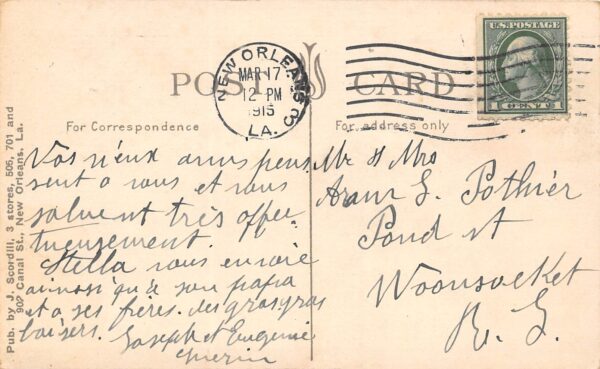 POST CARD
NEW ORLEANS 3 LA.
MAR 17
12 PM
1915
U.S. POSTAGE
1 CENT 1
For Correspondence
For address only
Vos vieux amis pen
sent a vous et vous
saluent très affec
tueusement.
Stella vous envoie
ainsi qu'a son papa
et a ses frères des gros gros
baisers. Joseph et Eugenie
Guerin
Mr & Mrs
Aram J. Pothier
Pond st
Woonsocket
R. I.
Pub. by J. Scordill, 3 stores, 505, 701 and
902 Canal St., New Orleans, La.